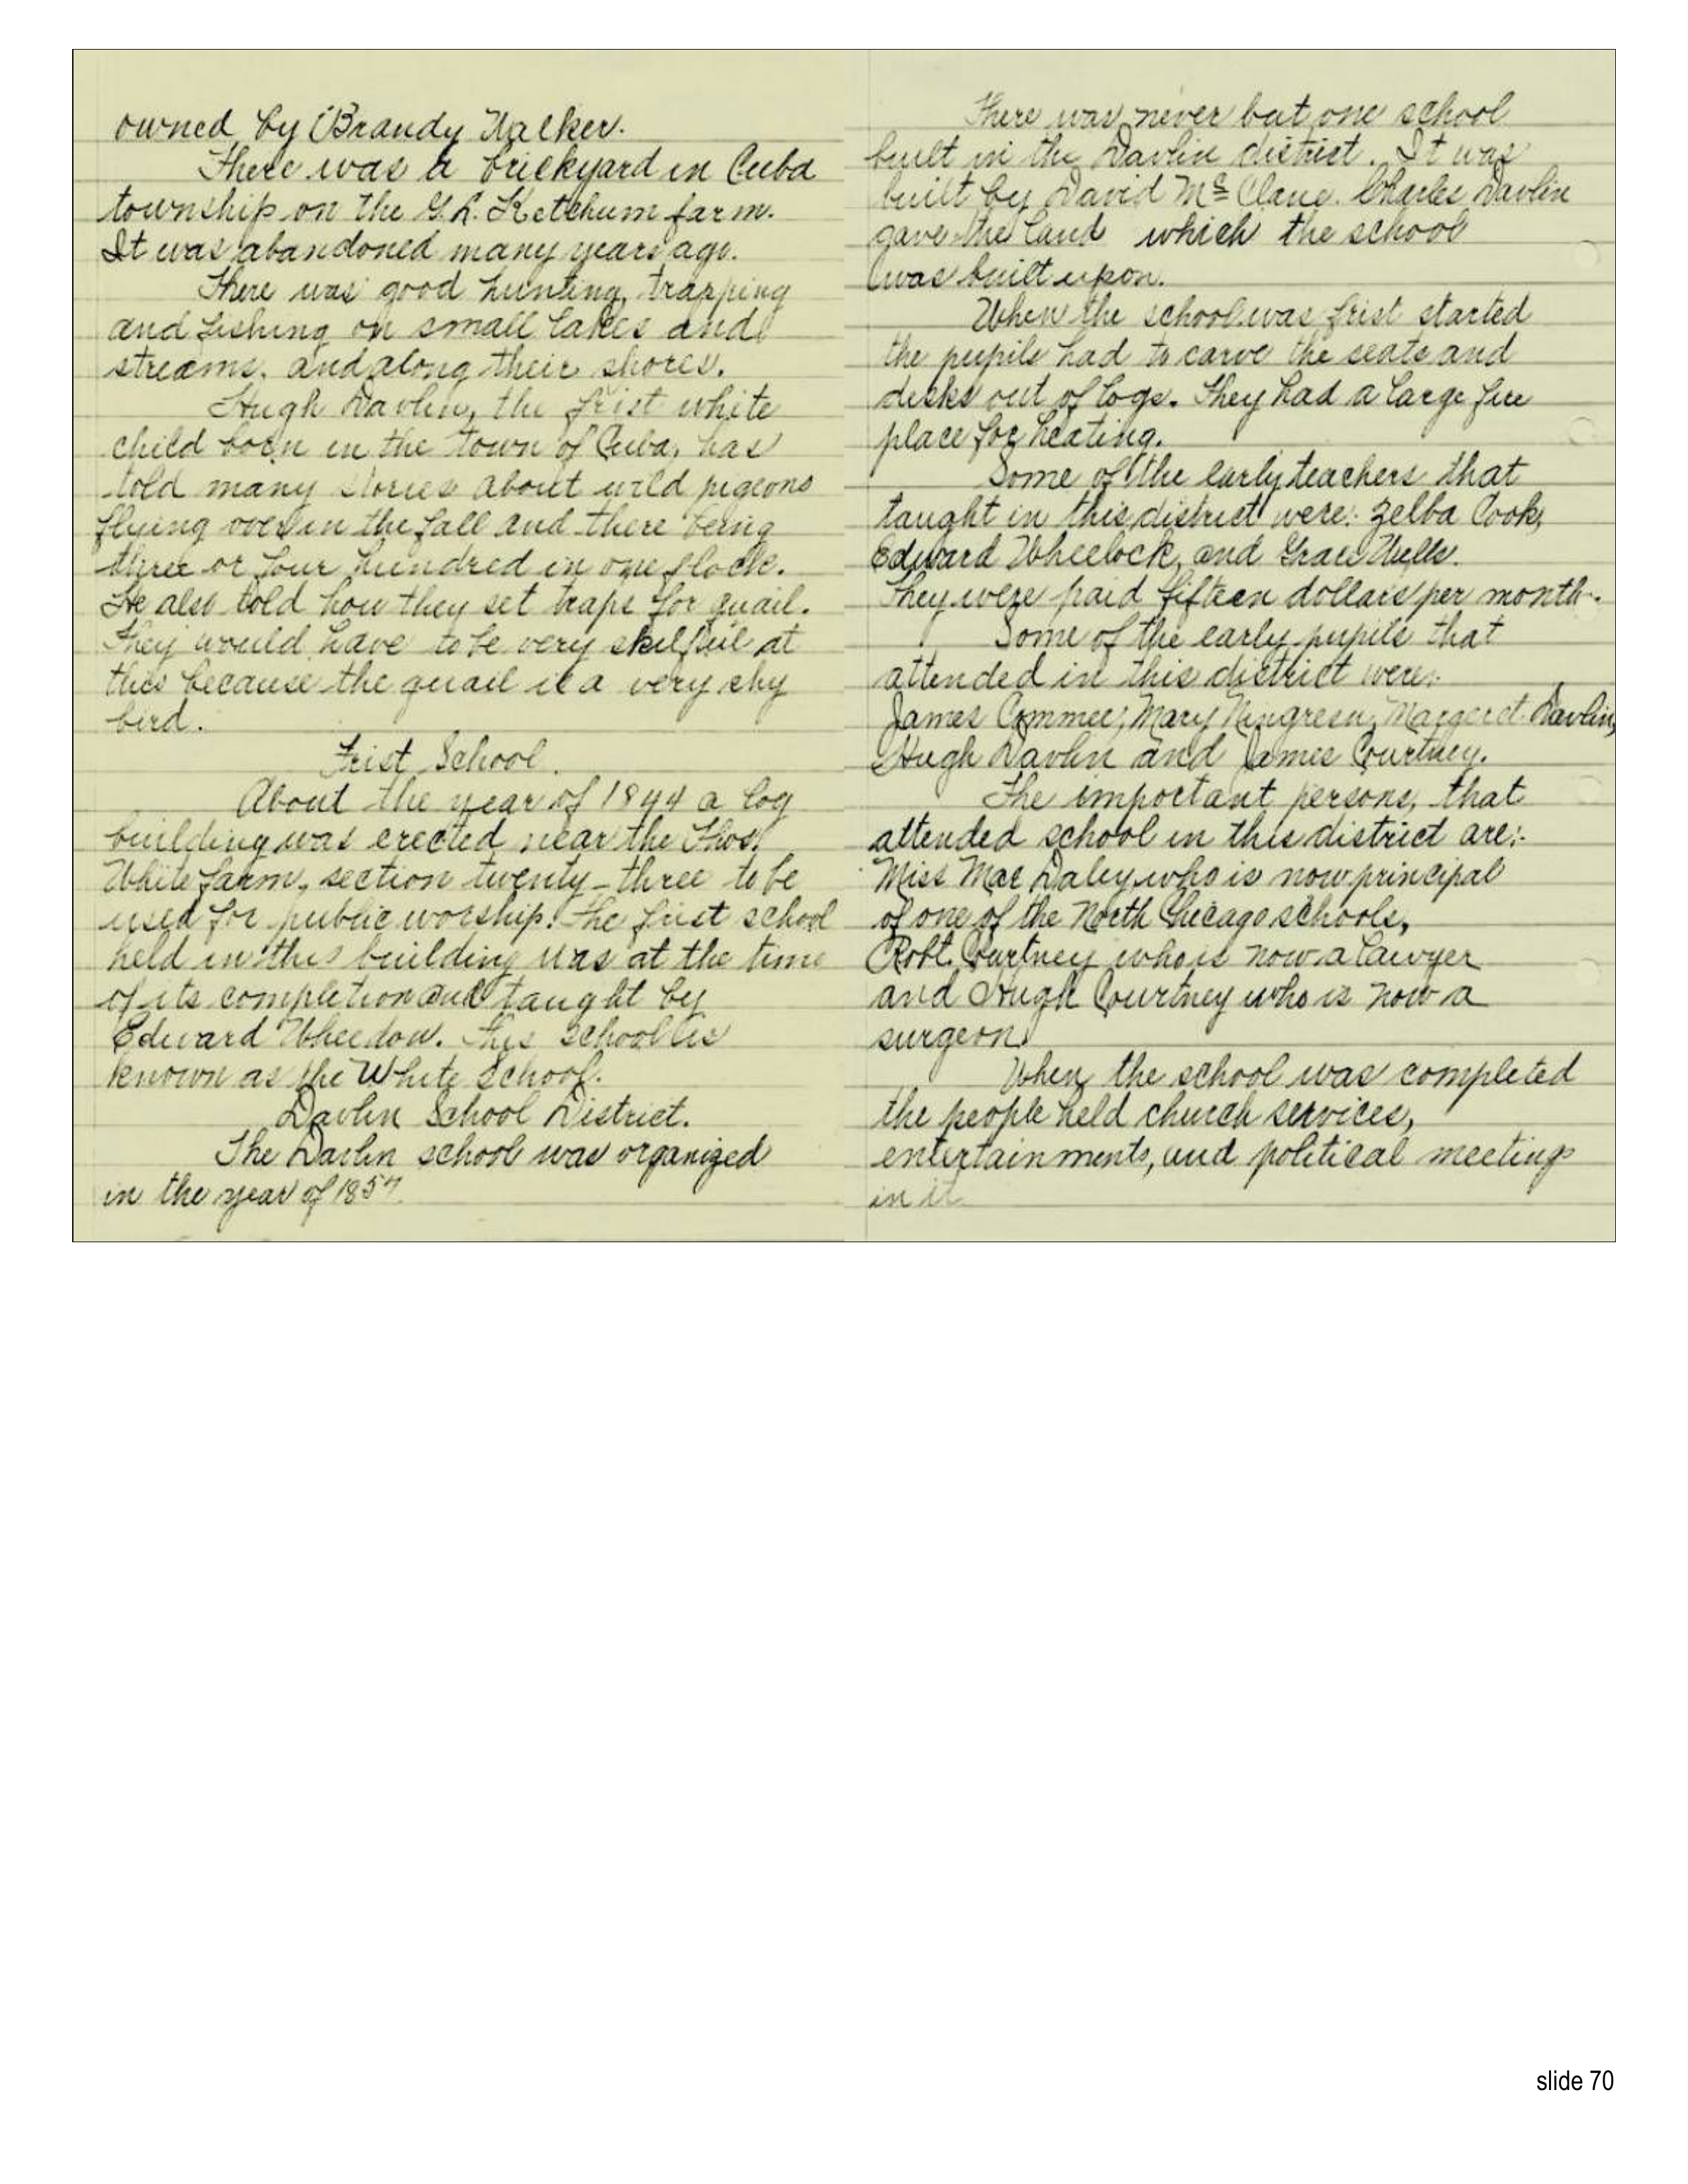 owned by Brandy Walker.
There was a brickyard in Cuba
township on the G. L. Ketchum farm.
It was abandoned many years ago.
There was good hunting, trapping
and fishing on small lakes and
streams, and along their shores.
Hugh Davlin, the frist white
child born in the town of Cuba, has
told many stories about wild pigeons
flying over in the fall and there being
three or four hundred in one flock.
He also told how they set traps for quail.
They would have to be very skilful at
this because the quail is a very shy
bird.
Frist School.
About the year of 1844 a log
building was erected near the Thos.
White farm, section twenty-three to be
used for public worship. The frist school
held in this building was at the time
of its completion and taught by
Edward Wheedow. This school is
known as the White School.
Davlin School District.
The Davlin school was organized
in the year of 185
There was never but one school
built in the Davlin district. It was
built by David Mc Clane. Charles Davlin
gave the land which the school
was built upon.
When the school was frist started
the pupils had to carve the seats and
desks out of logs. They had a large fire
place for heating.
Some of the early teachers that
taught in this district were: Zelba Cook,
Edward Wheelock, and Grace Wells.
They were paid fifteen dollars per month.
Some of the early pupils that
attended in this district were:
James Commee, Mary Margaret Davlin,
Hugh Davlin and James Courtney.
The important persons, that
attended school in this district are:
Miss Mae Daley who is now principal
of one of the North Chicago schools,
Robt. Courtney who is now a lawyer
and Hugh Courtney who is now a
surgeon.
When the school was completed
the people held church services,
entertainments, and political meetings
in it
slide 70